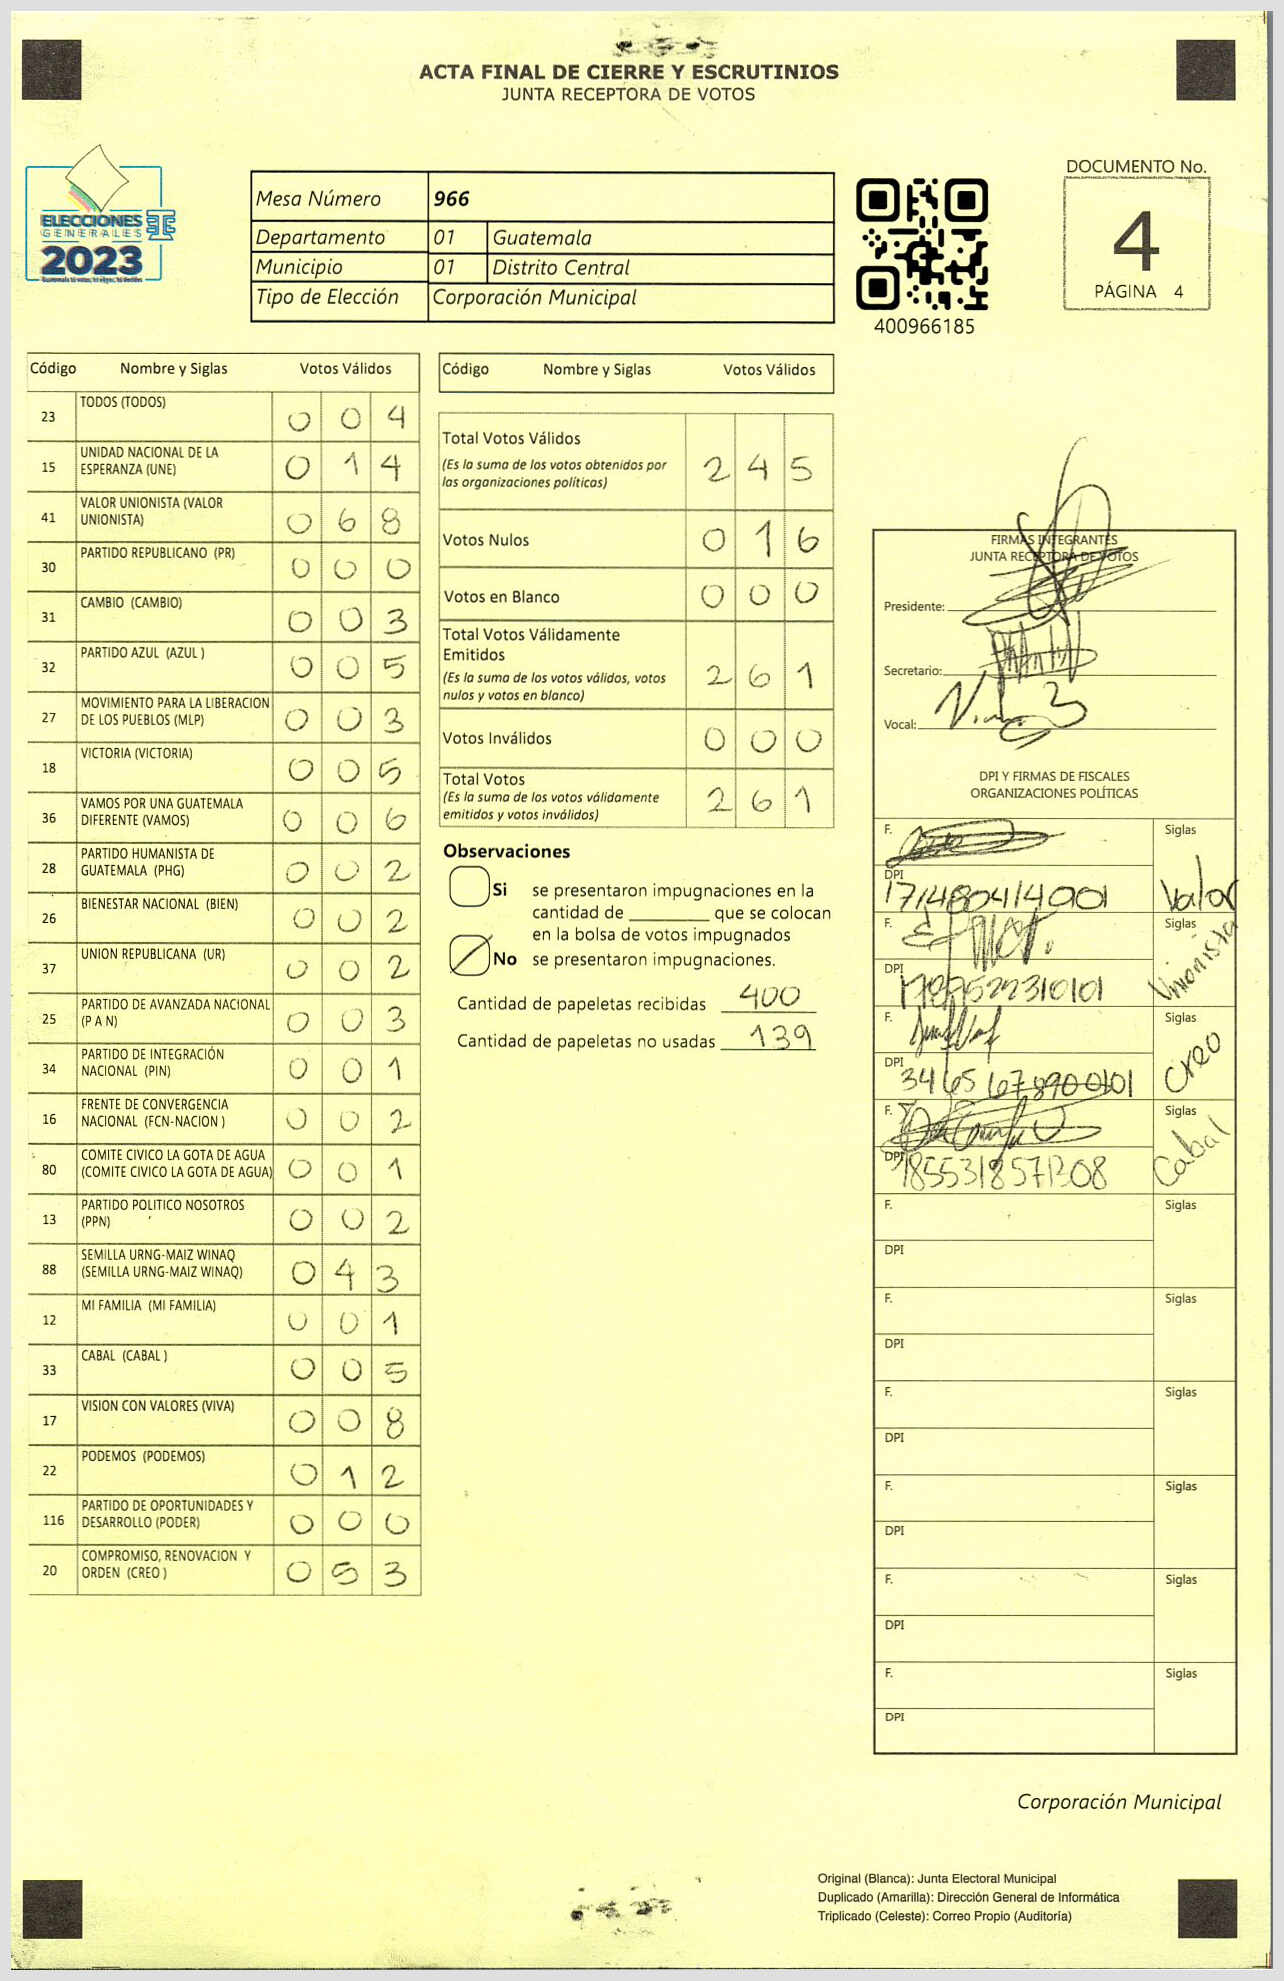 ACTA FINAL DE CIERRE Y ESCRUTINIOS
JUNTA RECEPTORA DE VOTOS
ELECCIONES
GENERALES
2023
Mesa Número 966
Departamento 01 Guatemala
Municipio 01 Distrito Central
Tipo de Elección Corporación Municipal
400966185
DOCUMENTO No.
4
PÁGINA 4
Código Nombre y Siglas Votos Válidos
23 TODOS (TODOS) 0 0 4
15 UNIDAD NACIONAL DE LA ESPERANZA (UNE) 0 1 4
41 VALOR UNIONISTA (VALOR UNIONISTA) 0 6 8
30 PARTIDO REPUBLICANO (PR) 0 0 0
31 CAMBIO (CAMBIO) 0 0 3
32 PARTIDO AZUL (AZUL ) 0 0 5
27 MOVIMIENTO PARA LA LIBERACION DE LOS PUEBLOS (MLP) 0 0 3
18 VICTORIA (VICTORIA) 0 0 5
36 VAMOS POR UNA GUATEMALA DIFERENTE (VAMOS) 0 0 6
28 PARTIDO HUMANISTA DE GUATEMALA (PHG) 0 0 2
26 BIENESTAR NACIONAL (BIEN) 0 0 2
37 UNION REPUBLICANA (UR) 0 0 2
25 PARTIDO DE AVANZADA NACIONAL (P A N) 0 0 3
34 PARTIDO DE INTEGRACIÓN NACIONAL (PIN) 0 0 1
16 FRENTE DE CONVERGENCIA NACIONAL (FCN-NACION ) 0 0 2
80 COMITE CIVICO LA GOTA DE AGUA (COMITE CIVICO LA GOTA DE AGUA) 0 0 1
13 PARTIDO POLITICO NOSOTROS (PPN) 0 0 2
88 SEMILLA URNG-MAIZ WINAQ (SEMILLA URNG-MAIZ WINAQ) 0 4 3
12 MI FAMILIA (MI FAMILIA) 0 0 1
33 CABAL (CABAL ) 0 0 5
17 VISION CON VALORES (VIVA) 0 0 8
22 PODEMOS (PODEMOS) 0 1 2
116 PARTIDO DE OPORTUNIDADES Y DESARROLLO (PODER) 0 0 0
20 COMPROMISO, RENOVACION Y ORDEN (CREO ) 0 5 3
Código Nombre y Siglas Votos Válidos
Total Votos Válidos 2 4 5
(Es la suma de los votos obtenidos por
las organizaciones políticas)
Votos Nulos 0 1 6
Votos en Blanco 0 0 0
Total Votos Válidamente
Emitidos 2 6 1
(Es la suma de los votos válidos, votos
nulos y votos en blanco)
Votos Inválidos 0 0 0
Total Votos 2 6 1
(Es la suma de los votos válidamente
emitidos y votos inválidos)
Observaciones
Si se presentaron impugnaciones en la
cantidad de ________ que se colocan
en la bolsa de votos impugnados
No se presentaron impugnaciones.
Cantidad de papeletas recibidas 400
Cantidad de papeletas no usadas 139
FIRMAS INTEGRANTES
JUNTA RECEPTORA DE VOTOS
Presidente:
Secretario:
Vocal:
DPI Y FIRMAS DE FISCALES
ORGANIZACIONES POLÍTICAS
F. Siglas
DPI Valor
F. Siglas
DPI Unionista
F. Siglas
DPI Creo
F. Siglas
DPI Cabal
F. Siglas
DPI
F. Siglas
DPI
F. Siglas
DPI
F. Siglas
DPI
F. Siglas
DPI
F. Siglas
DPI
Corporación Municipal
Original (Blanca): Junta Electoral Municipal
Duplicado (Amarilla): Dirección General de Informática
Triplicado (Celeste): Correo Propio (Auditoría)